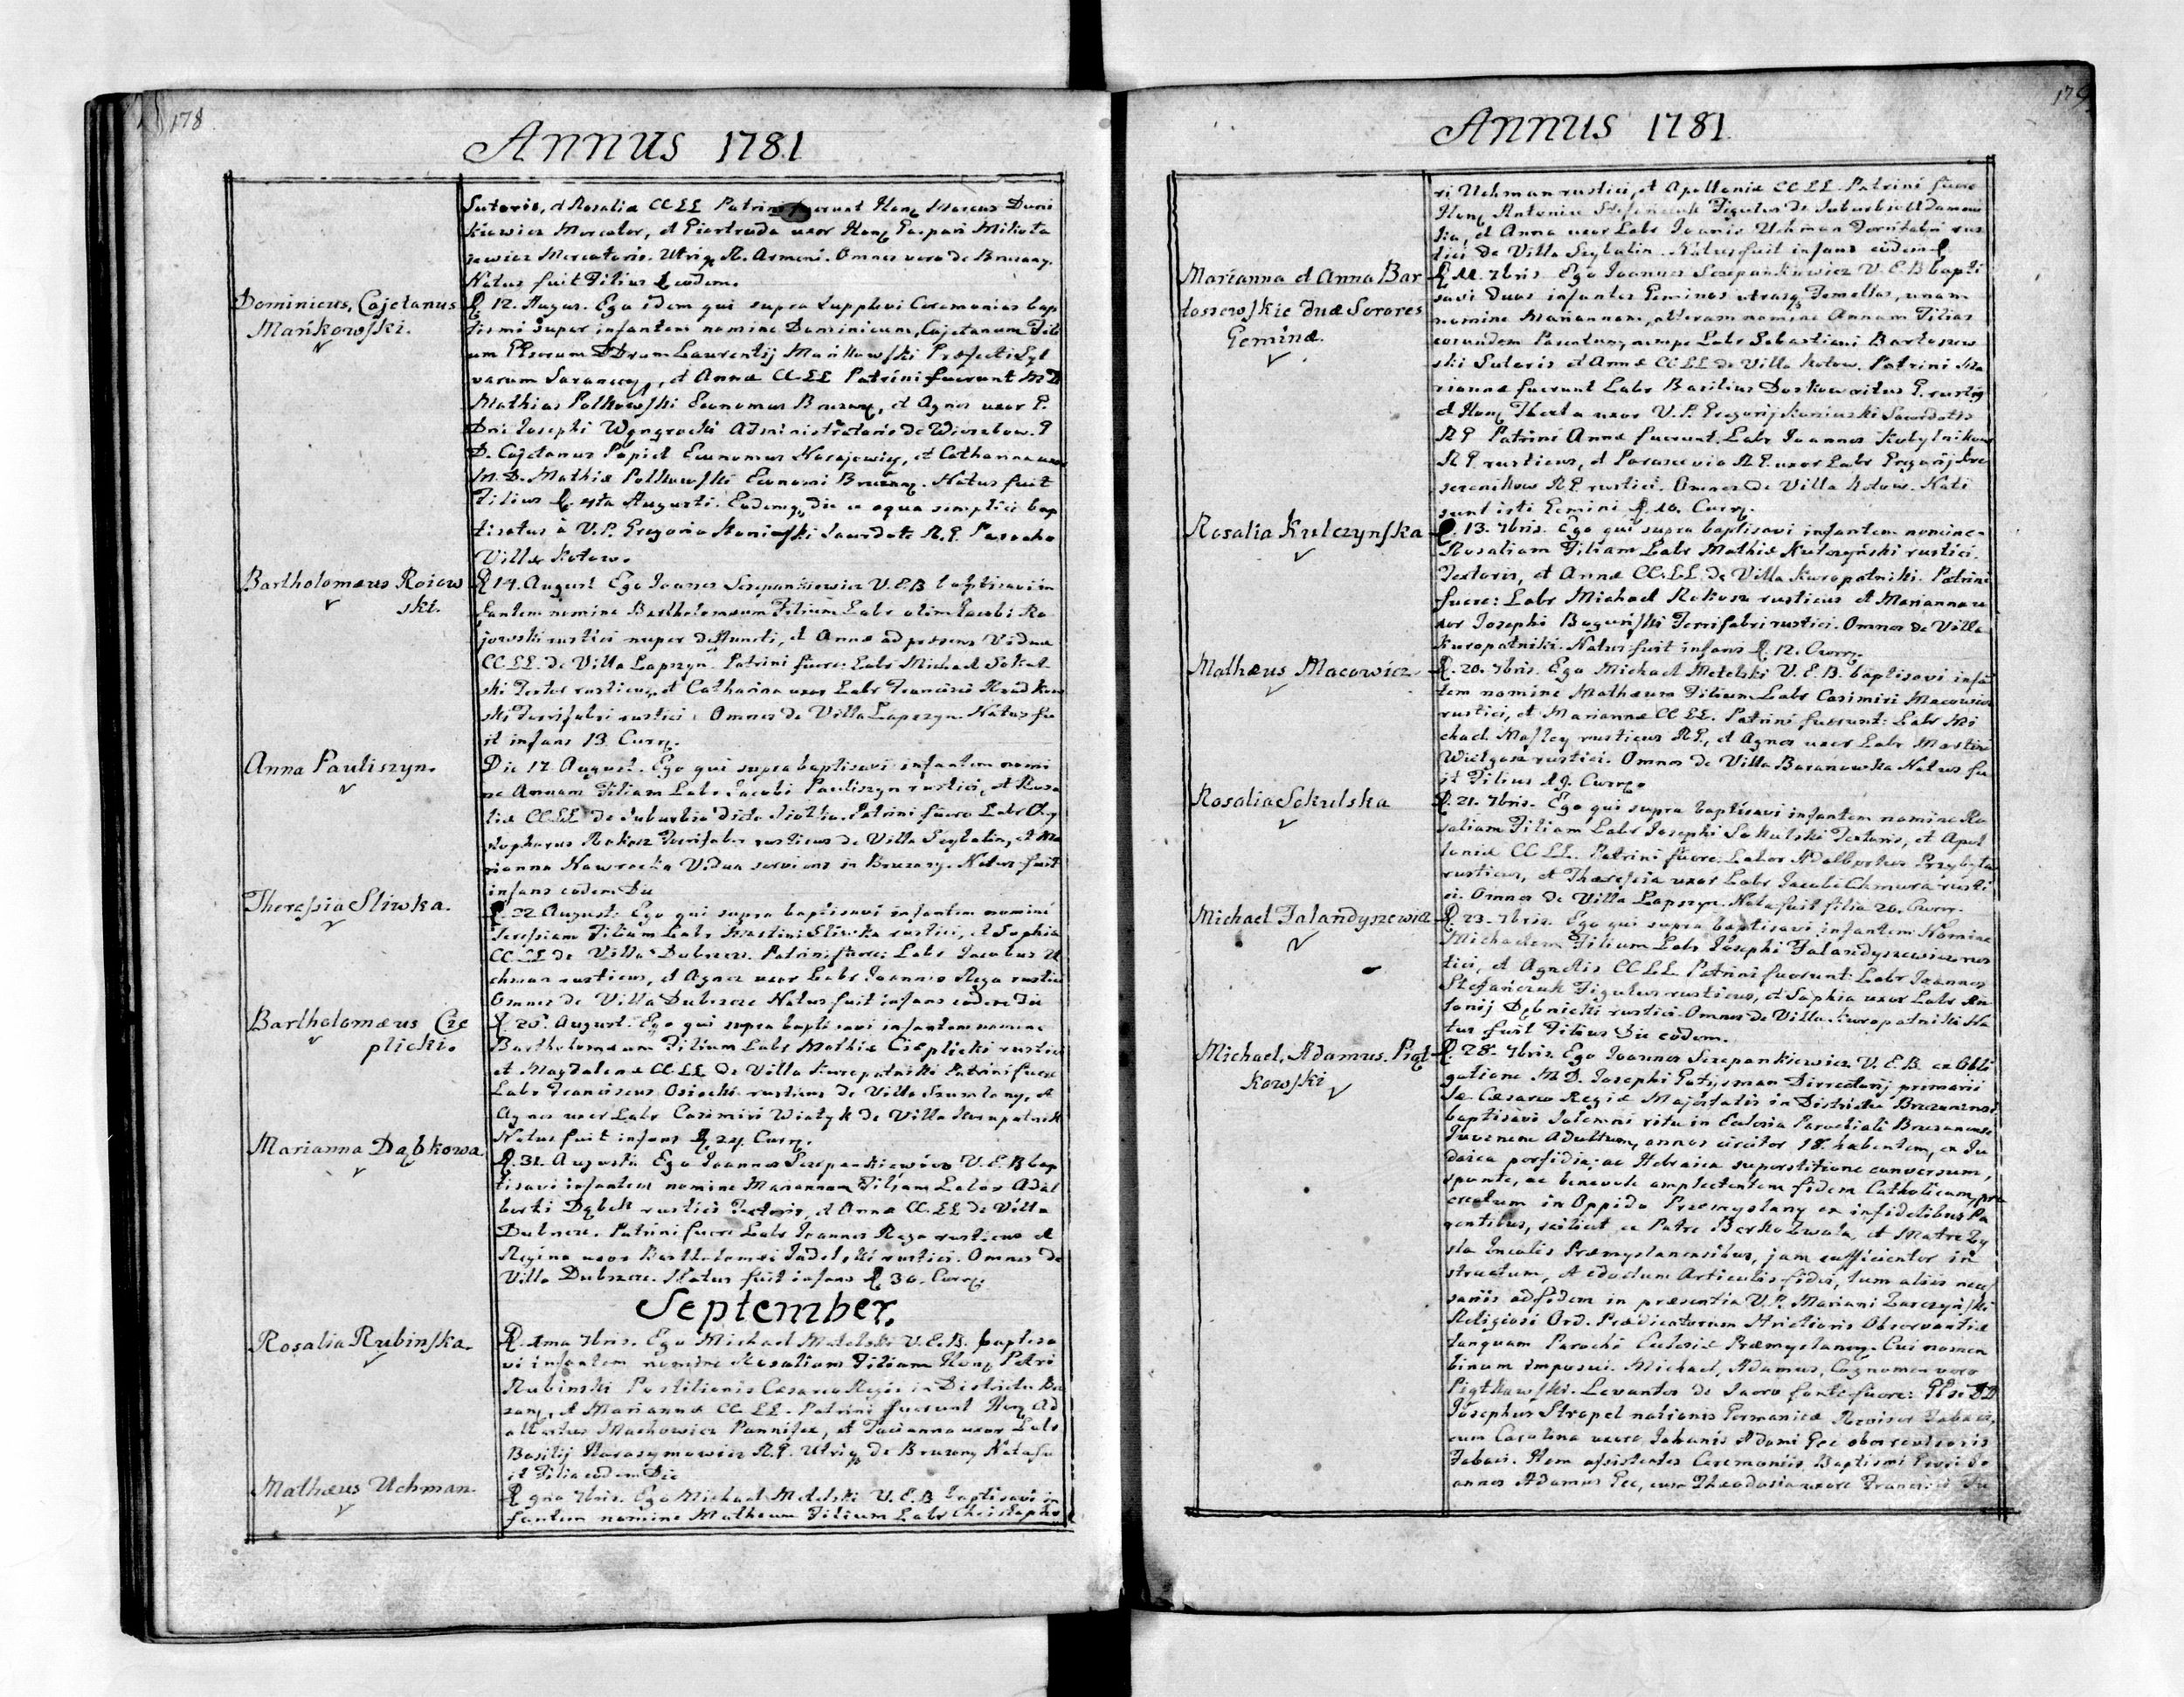 178
Annus 1781
Sutoris, et Rosaliæ CC LL Patrini fuerunt Hon Marcus Duni
kiewicz Mercator, et Giertruda uxor Hon Gaspari Mikoła
jewicz Mercatoris. Utriq R. Armeni. Omnes vero de Brzezany.
Natus fuit Filius eodem.
Dominicus, Cajetanus
Mańkowski.
12. Augus. Ego idem qui supra supplevi Ceremonias bap
tismi super infantem nomine Dominicum, Cajetanum Fili
um Laurentij Mańkowski Præfecti Syl
varum, et Annæ CC LL Patrini fuerunt M D
Mathias Polkowski Economus, et Agnes uxor G.
Dni Josephi Węngrocki Administratoris de Wierzbow. G
D. Cajetanus Papiet Economus Narajewiy, et Catharina uxor
M. D. Mathiæ Polkowski Economi Brzezany. Natus fuit
Filius 4ta Augusti. Eodemq die ex aqua simplici bap
tisatus à V. P. Gregorio Koniuski Sacerdote R. G. Parocho
Villæ Kotow.
Bartholomæus Roiew
ski.
14. August Ego Joannes Szczepankiewicz V. E. B baptisavi in
fantem nomine Bartholomæum Filium Labr olim Jacobi Ro
jowski rustici nuper defuncti, et Annæ ad præsens Viduæ
CC LL de Villa Lapszyn. Patrini fuere: Labr Michael Sokul
ski Textor rusticus, et Catharina uxor Labr Francisci
ski Ferrifabri rustici. Omnes de Villa Lapszyn. Natus fu
it infans 13 Curr.
Anna Pauliszyn.
Die 17 August. Ego qui supra baptisavi infantem nomi
ne Annam Filiam Labr Jacobi Pauliszyn rustici, et Rosa
liæ CC LL de Suburbio dicto Siołko. Patrini fuere Labr Chry
stophorus Rokosz Ferrifaber rusticus de Villa Szybalin, et Ma
rianna Nawrocka Vidua serviens in Brzezany. Natus fuit
infans eodem Die
Theressia Sliwka.
22 August: Ego qui supra baptisavi infantem nomine
Teressiam Filiam Labr Martini Sliwka rustici, et Sophiæ
CC LL de Villa Dubszcze. Patrini fuere: Labr Jacobus U
chman rusticus, et Agnes uxor Labr Joannis Rega rustici
Omnes de Villa Dubszcze Natus fuit infans eodem Die
Bartholomæus Cze
plicki.
25. August. Ego qui supra baptisavi infantem nomine
Bartholomæum Filium Labr Mathiæ Cieplicki rustici
et Magdalenæ CC LL de Villa Kuropatniki Patrini fuere
Labr Franciscus Osiecki rusticus de Villa Szumlany, et
Agnes uxor Labr Casimiri Wiatyk de Villa Kuropatniki
Natus fuit infans 24 Curr.
Marianna Dąbkowa
31. Augusti Ego Joannes Szczepankiewicz V. E. B bap
tisavi infantem nomine Mariannam Filiam Labor Adal
berti Dąbek rustici Textoris, et Annæ CC. LL de Villa
Dubszcze. Patrini fuere Labr Joannes Rega rusticus et
Regina uxor Bartholomei rustici. Omnes de
Villa Dubszcze. Natus fuit infans 30. Curr.
September.
Rosalia Rubinska.
1ma 7bris. Ego Michael Metelski V. E. B. baptisa
vi infantem nomine Rosaliam Filiam Hon Petri
Rubinski Postilionis Cæsareo Regis in Districtu Brze
zan, et Mariannæ CC. LL. Patrini fuerunt Hon Ad
albertus Machowicz Pannifex, et Tacianna uxor Labr
Basilij Harasymowicz R. G. Utriq de Brzezany Nata fu
it Filia eodem Die
Mathæus Uchman.
9na 7bris. Ego Michael Metelski V. E. B baptisavi in
fantem nomine Matheum Filium Labr Christopho
179
Annus 1781.
ri Uchman rustici, et Apolloniæ CC LL. Patrini fuere
Hon Antonius Stefańczuk Figulus de Suburbio Adamow
ka, et Anna uxor Labr Joanis Uchman Ferrifabri rus
tici de Villa Szybalin. Natus fuit infans eodem
Marianna et Anna Bar
tossewskie duæ Sorores
Geminæ.
11. 7bris. Ego Joannes Szczepankiewicz V. E. B bapti
savi duas infantes Geminas utrasq Femellas, unam
nomine Mariannam, alteram nomine Annam Filias
eorundem Parentum, nempe Labr Sebastiani Bartoszew
ski Sutoris et Annæ CC LL de Villa Kotow. Patrini Ma
riannæ fuerunt Labr Basilius Doskow ritus G. rustic
et Hon Thecla uxor V. P. Gregorij Koniuski Sacerdotis
R G Patrini Annæ fuerunt. Labr Joannes Kobylnikow
R G. rusticus, et Parascevia R G. uxor Labr Gregorij
R G. rustici. Omnes de Villa Kotow. Nati
sunt isti Gemini 10. Curr.
Rosalia Kulczynska
13. 7bris. Ego qui supra baptisavi infantem nomine
Rosaliam Filiam Labr Mathiæ Kulczyński rustici
Textoris, et Annæ CC. LL. de Villa Kuropatniki. Patrini
fuere: Labr Michael Rokosz rusticus et Marianna u
xor Josephi Boguński Ferrifabri rustici. Omnes de Villa
Kuropatniki. Natus fuit infans 12. Curr.
Mathæus Macowicz
20. 7bris. Ego Michael Metelski V. E. B. baptisavi infan
tem nomine Mathæum Filium Labr Casimiri Macowicz
rustici, et Mariannæ CC LL. Patrini fuerunt: Labr Mi
chael Masley rusticus R G., et Agnes uxor Labr Martini
Wielgosz rustici. Omnes de Villa Baranowka Natus fu
it Filius 19. Curr.
Rosalia Sokulska
21. 7bris. Ego qui supra baptisavi infantem nomine Ro
saliam Filiam Labr Josephi Sokulski Textoris, et Apol
loniæ CC LL. Patrini fuere: Labor Adalbertus Przybyla
rusticus, et Theressia uxor Labr Jacobi Chmura rusti
ci. Omnes de Villa Lapszyn. Nata fuit filia 20. Curr.
Michael Jalandyszewicz
23. 7bris. Ego qui supra baptisavi infantem Nomine
Michaelem Filium Labr Josephi Jalandyszewicz rus
tici, et Agnetis CC LL. Patrini fuerunt: Labr Joannes
Stefańczuk Figulus rusticus, et Sophia uxor Labr An
tonij Dębnicki rustici. Omnes de Villa Kuropatniki Na
tus fuit Filius Die eodem.
Michael, Adamus. Piąt
kowski
28. 7bris. Ego Joannes Szczepankiewicz V. E. B. ex Obli
gatione M D. Josephi Directorij primarii
Sæ Cæsareo Regiæ Majestatis in Districtu Brzezanensi
baptisavi solemni ritu in Ecclesia Parochiali Brzezanensi
Juvenem Adultum, annos circiter 18. habentem, ex Ju
daica perfidia, ac Hebraica superstitione conversum,
sponte, ac benevole amplectentem fidem Catholicam, pro
creatum in Oppido Przemyslany ex infidelibus Pa
rentibus, scilicet ex Patre Berko Zwola, et Matre Zy
sla Incolis Præmyslanensibus, jam sufficienter in
structum, et edoctum Articulis fidei, tum aliis neces
sariis ad fidem in præsentia V. P. Mariani Zarczyński
Religiosi Ord. Prædicatorum Strictioris Observantiæ
tanquam Parochi Ecclesiæ Præmyslanen. Cui nomen
binum imposui. Michael, Adamus, Cognomen vero
Piątkowski. Levantes de Sacro fonte fuere: GG DD
Josephus Stropel nationis Germanicæ Revisor Tabaci,
cum Carolina uxore Johanis Adami Gee
Tabaci. Item assistentes Ceremoniis Baptismi Jo
annes Adamus Gee, cum Theodosia uxore Francisci